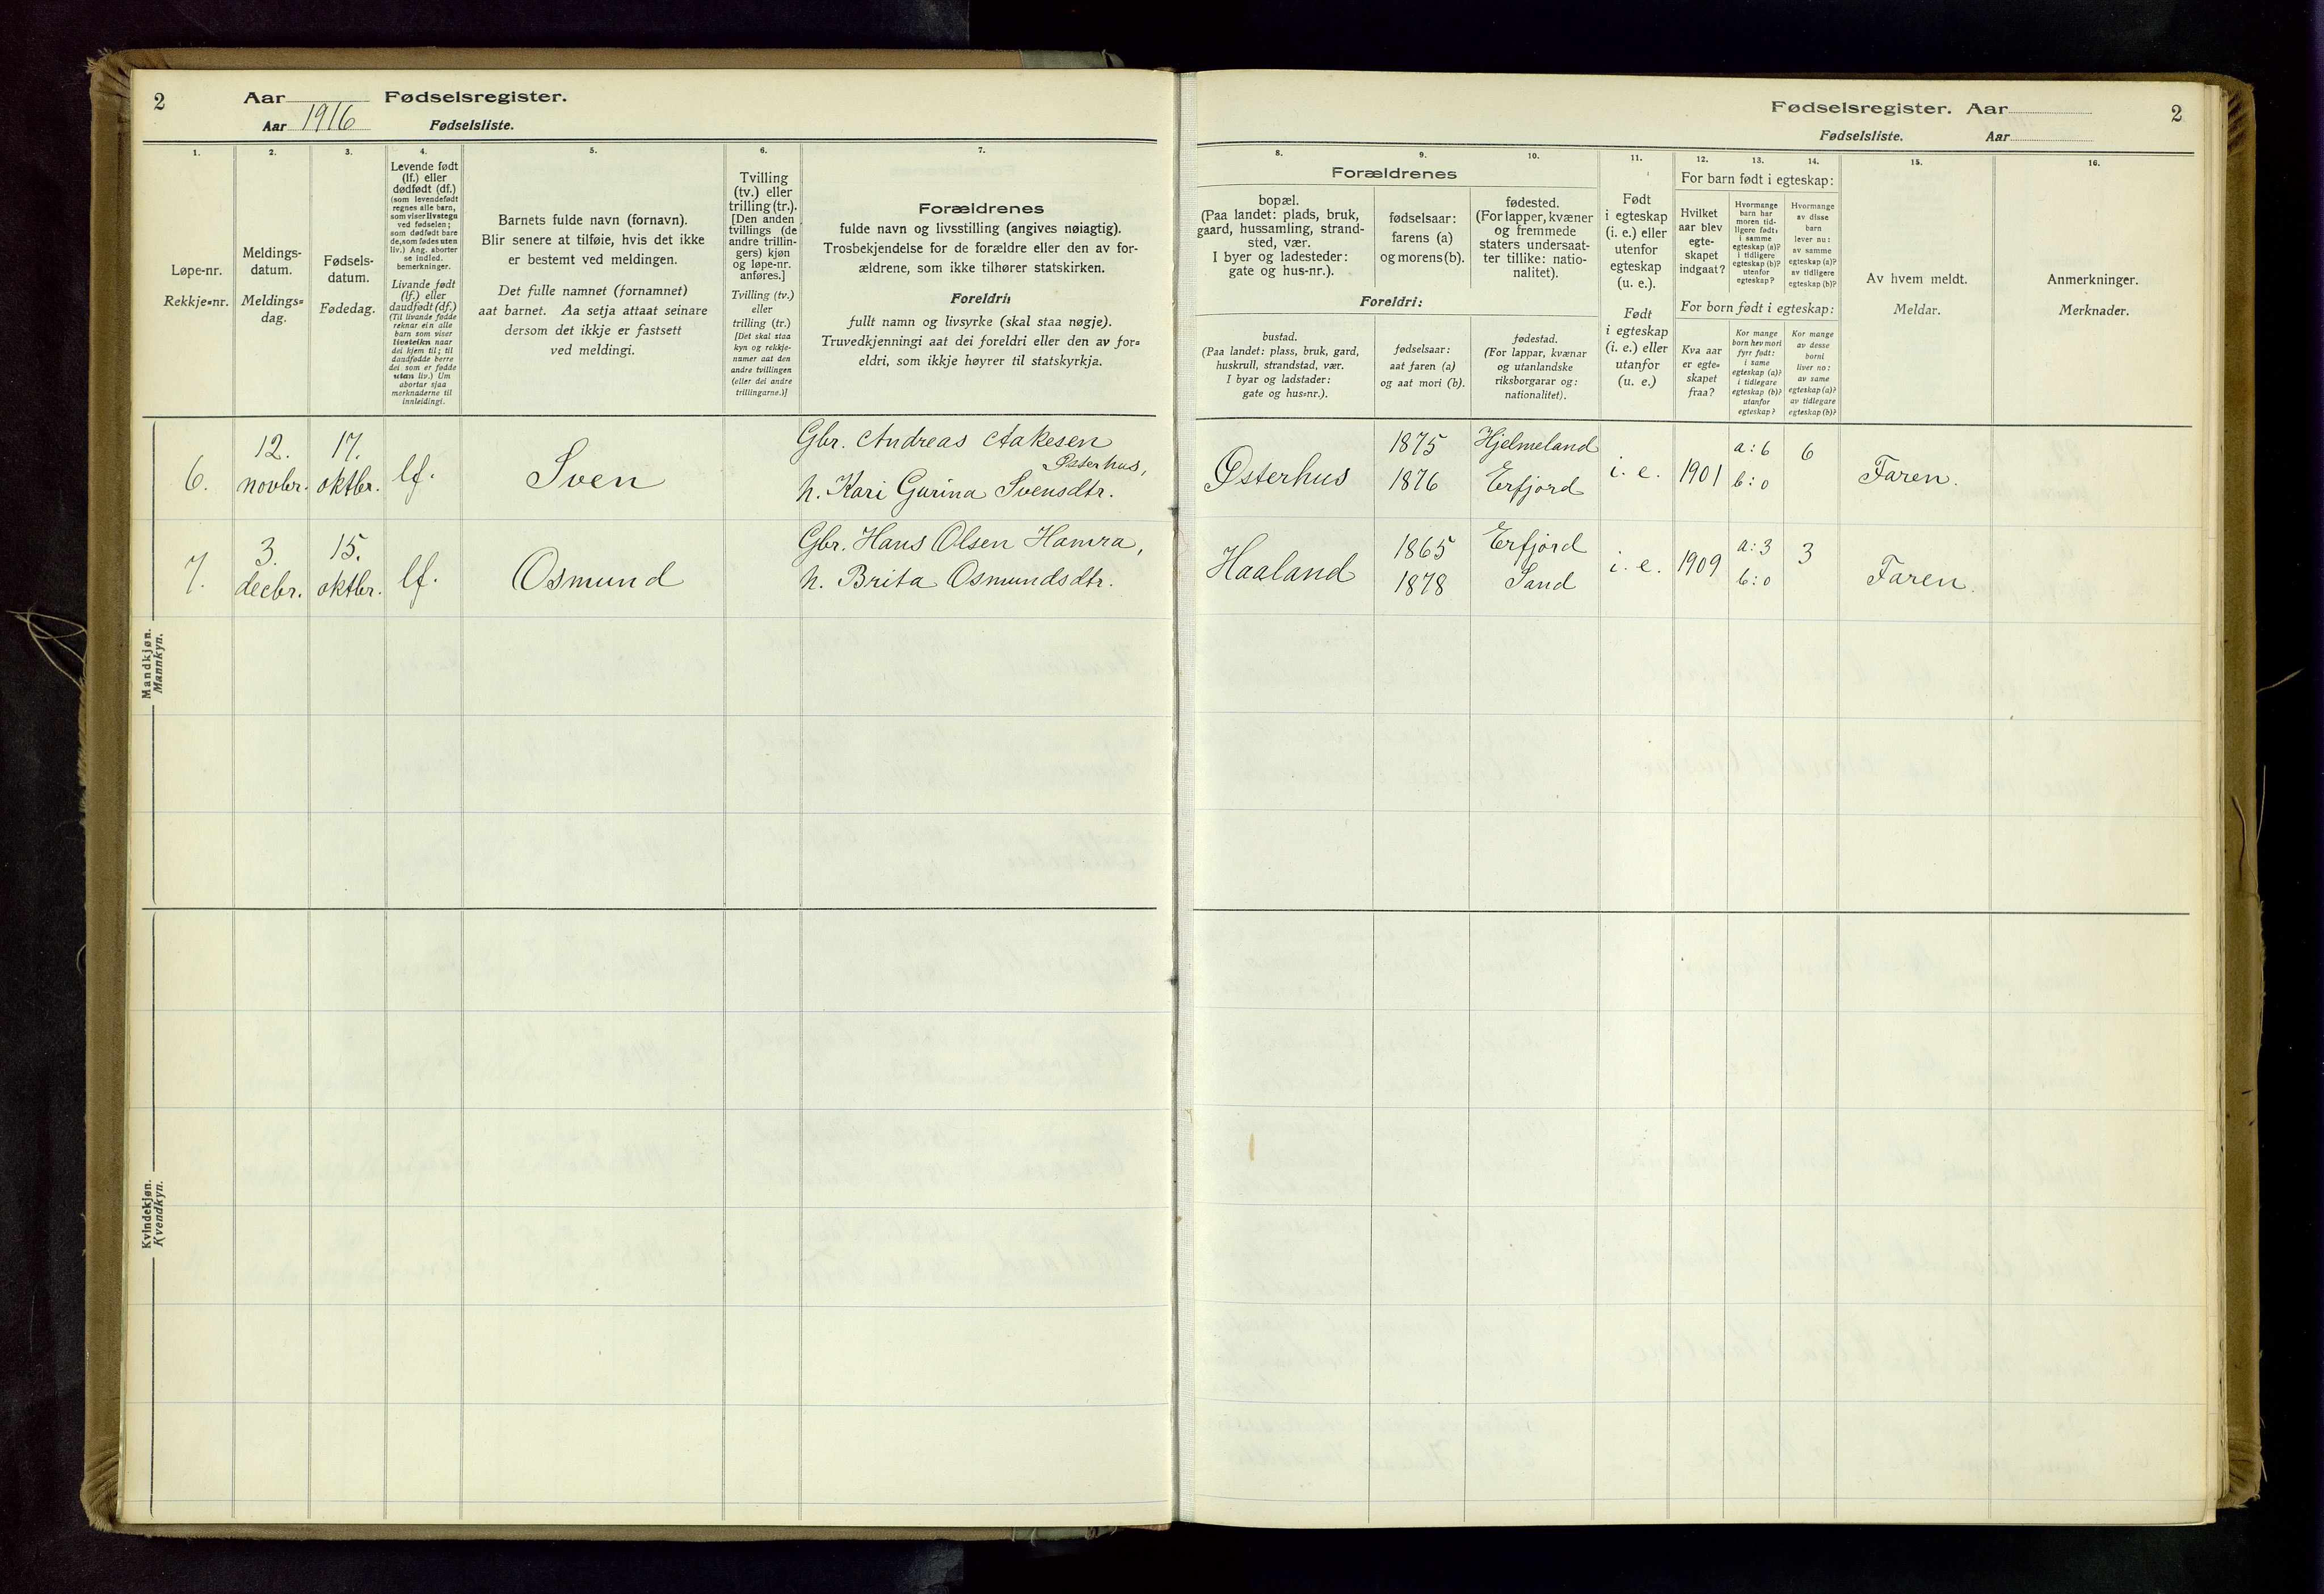 2
Aar Fødselsregister.
Aar 1916 Fødselsliste.
Fødselsregister. Aar
Fødselsliste. Aar
2
1.
Løpe-nr.
Rekkje=nr.
2.
Meldings-
datum.
Meldings=
dag.
3.
Fødsels-
datum.
Fødedag.
4.
Levende født
(lf.) eller
dødfødt (df.)
(som levendefødt
regnes alle barn,
som viser livstegn
ved fødselen;
som dødfødt bare
de, som fødes uten
liv.) Ang. aborter
se indled.
bemerkninger.
Livande født
(lf.) eller
daudfødt (df.)
(Til livande fødde
reknar ein alle
barn som viser
livsteikn naar
dei kjem til; til
daudfødde berre
dei som er fødde
utan liv.) Um
abortar sjaa
merknaderne til
innleidingi.
5.
Barnets fulde navn (fornavn).
Blir senere at tilføie, hvis det ikke
er bestemt ved meldingen.
Det fulle namnet (fornamnet)
aat barnet. Aa setja attaat seinare
dersom det ikkje er fastsett
ved meldingi.
6.
Tvilling
(tv.) eller
trilling (tr.).
[Den anden
tvillings (de
andre trillin-
gers) kjøn
og løpe-nr.
anføres.]
Tvilling (tv.)
eller
trilling (tr.)
[Det skal staa
kyn og rekkje-
numer aat den
andre tvillingen
(eller dei andre
trillingarne.)]
7.
Forældrenes
fulde navn og livsstilling (angives nøiagtig).
Trosbekjendelse for de forældre eller den av for-
ældrene, som ikke tilhører statskirken.
Foreldri:
fullt namn og livsyrke (skal staa nøgje).
Truvedkjenningi aat dei foreldri eller den av for=
eldri, som ikkje høyrer til statskyrkja.
8.
9.
10.
Forældrenes
bopæl.
(Paa landet: plads, bruk,
gaard, hussamling, strand-
sted, vær.
I byer og ladesteder:
gate og hus-nr.).
fødselsaar:
farens (a)
og morens (b).
fødested.
(For lapper, kvæner
og fremmede
staters undersaat-
ter tillike: natio-
nalitet).
Foreldri:
bustad.
(Paa landet: plass, bruk, gard,
huskrull, strandstad, vær.
I byar og ladstader:
gate og hus=nr.).
fødselsaar:
aat faren (a)
og aat mori (b).
fødestad.
(For lappar, kvænar
og utanlandske
riksborgarar og:
nationalitet).
11.
Født
i egteskap
(i. e.) eller
utenfor
egteskap
(u. e.).
Født
i egteskap
(i. e.) eller
utanfor
(u. e.)
12.
13.
14.
For barn født i egteskap:
Hvilket
aar blev
egte-
skapet
indgaat?
Hvormange
barn har
moren tid-
ligere født:
i samme
egteskap (a)?
i tidligere
egteskap (b)?
utenfor
egteskap?
Hvormange
av disse
barn
lever nu:
av samme
egteskap (a)?
av tidligere
egteskap (b)?
For born født i egteskap:
Kva aar
er egte=
skapet
fraa?
Kor mange
born hev mori
fyrr født:
i same
egteskap (a)?
i tidlegare
egteskap (b)?
utanfor
egteskap?
Kor mange
av desse
borni
liver no:
av same
egteskap (a)?
av tidlegare
egteskap (b)?
15.
Av hvem meldt.
Meldar.
16.
Anmerkninger.
Merknader.
Mandkjøn.
Mannkyn.
6. 12. novbr. 17. oktbr. lf. Sven
Gbr. Andreas Aakesen
Østerhus,
h. Kari Gurina Svensdtr.
Østerhus
1875 Hjelmeland
1876 Erfjord
i. e. 1901 a: 6 b: 0 6 Faren.
7. 3. decbr. 15. oktbr. lf. Osmund
Gbr. Hans Olsen Hamra,
h. Brita Osmundsdtr.
Haaland
1865 Erfjord
1878 Sand
i. e. 1909 a: 3 b: 0 3 Faren.
Kvindekjøn.
Kvendkyn.